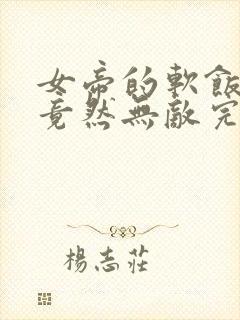 女帝的軟飯
竟然無敵完
楊志莊